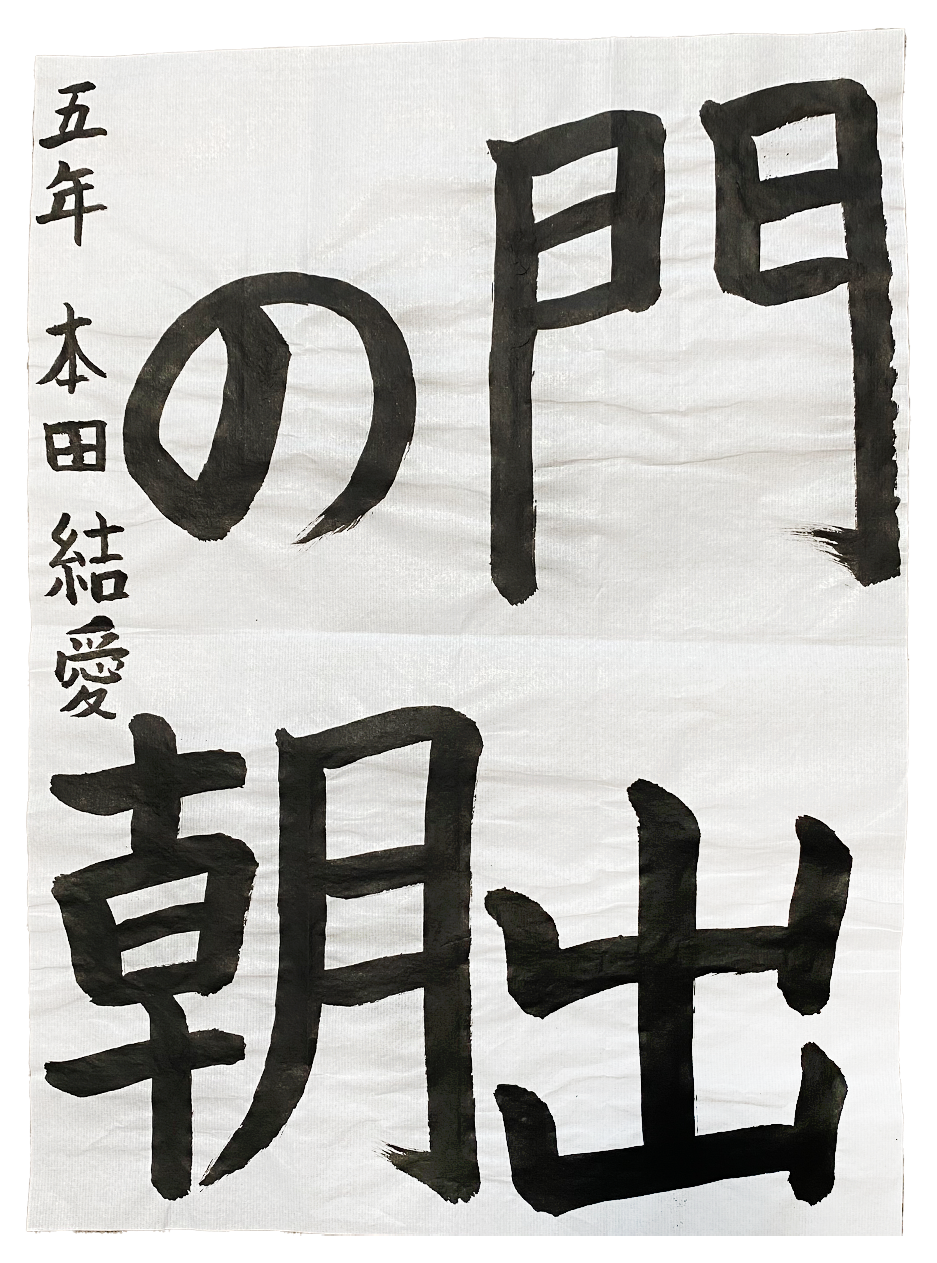 門出
の朝
五年 本田結愛